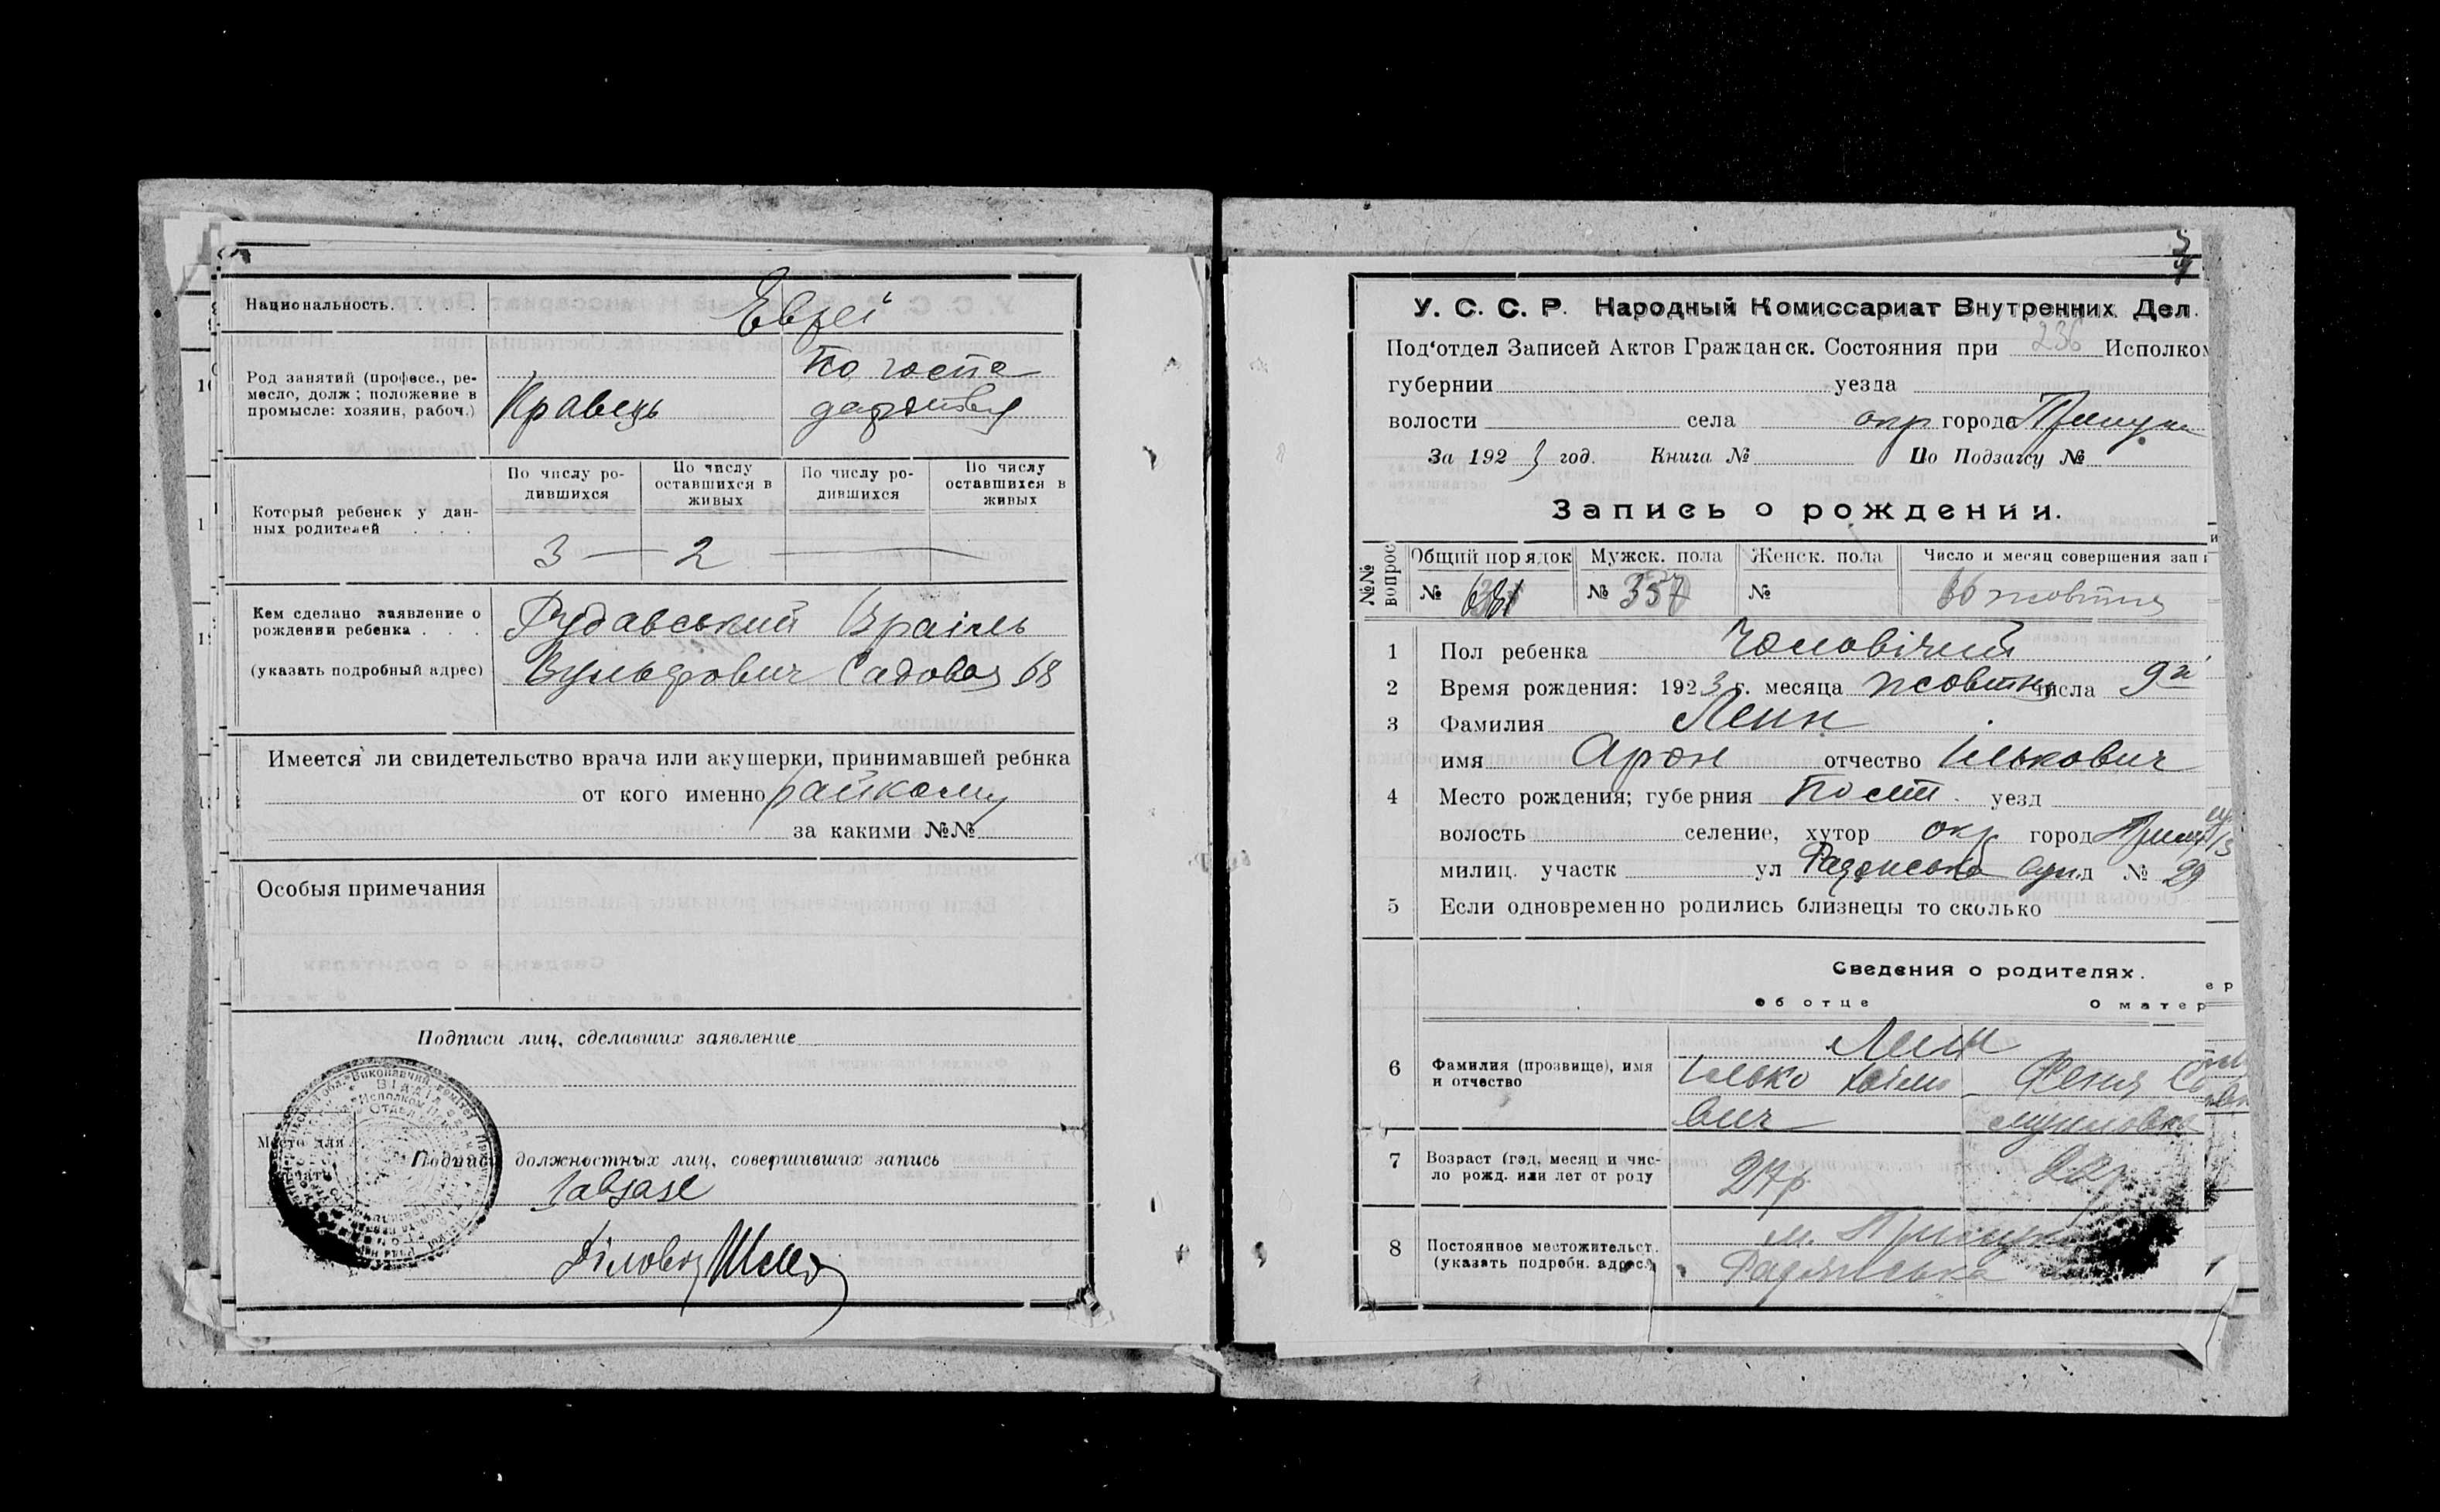 Национальность. . . . .
Евреї
Род занятий (професс., ре-
месло, долж; положение в
промысле: хозяин, рабоч.)
Кравець
По госпо
дарству
Который ребенок у дан-
ных родителей . . .
По числу ро-
дившихся
По числу
оставшихся в
живых
По числу ро-
дившихся
По числу
оставшихся в
живых
3 — 2 —
Кем сделано заявление о
рождении ребенка . . .
(указать подробный адрес)
Рудавський Ізраіль
Вульфович Садовая 68
Имеется ли свидетельство врача или акушерки, принимавшей ребнка
от кого именно райкому
за какими №№
Особыя примечания
Подписи лиц, сделавших заявление
Место для
печати
Подписи должностных лиц, совершивших запись
Завзагс
Діловод
У. С. С. Р. Народный Комиссариат Внутренних Дел.
Под'отдел Записей Актов Гражданск. Состояния при 236 Исполком
губернии уезда
волости села окр города Прилуки
За 1923 год. Книга № По Подзагсу №
Запись о рождении.
№№
вопрос
Общий порядок
Мужск. пола
Женск. пола
Число и месяц совершения запи
№
№ 357
№
30 жовтня
1 Пол ребенка Чоловічий
2 Время рождения: 1923 г. месяца жовтня числа 9го
3 Фамилия Лейн
имя Арон отчество Ількович
4 Место рождения; губерния Полт. уезд
волость селение, хутор окр город Прилуки
милиц. участк ул Радянська вул. д № 29
5 Если одновременно родились близнецы то сколько
Сведения о родителях.
об отце
о матер
6 Фамилия (прозвище), имя
и отчество
Лейн
Ілько Хаімо
вич
Феня Са
муиловна
7 Возраст (год, месяц и чис-
ло рожд. или лет от роду
27р.
22р.
8 Постоянное местожительст.
(указать подробн. адрес.)
м. Прилуки
Радянська